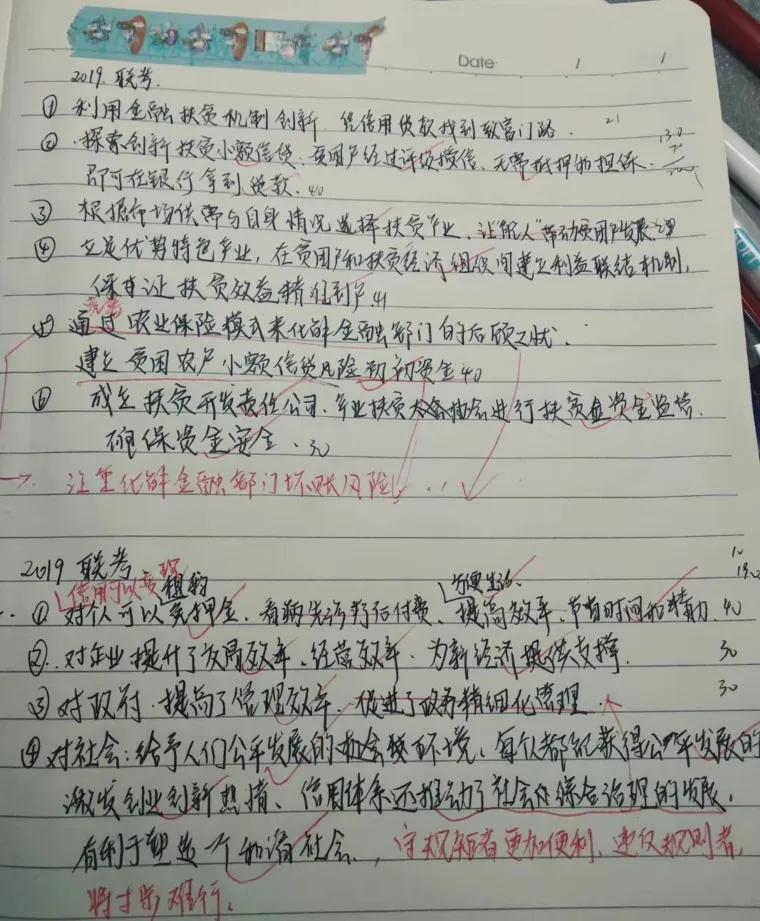 Date / /
2019. 联考.
① 利用金融扶贫机制创新. 凭信用贷款找到致富门路. 21
② 探索创新扶贫小额信贷. 贫困户经过评级授信、无需抵押和担保. 130
即可在银行拿到贷款. 40
③ 根据市场供需与自身情况选择扶贫产业、让能人"带动贫困户发展."
④ 立足优势特色产业, 在贫困户和扶贫经济组织间建立利益联结机制,
保证扶贫效益精准到户 41
通过农业保险模式来化解金融部门的后顾之忧.
建立贫困农户小额信贷风险 资金 40
⑥ 成立扶贫开发责任公司、产业扶贫 协会进行扶贫 资金监管.
确保资金安全. 30
→. 注重化解金融部门坏账风险. . .
2019 联考 10
信用可以变现 租购 方便生活. 190
① 对个人可以免押金. 看病先诊疗后付费、提高效率、节省时间和精力. 40
②. 对企业提升了发展效率、经营效率. 为新经济提供支撑. 30
③ 对政府. 提高了管理效率. 促进了政务精细化管理. 30
④ 对社会: 给予人们公平发展的机会 环境、每个人都能获得公平发展的
激发创业创新热情、信用体系还推动了社会 综合治理的发展.
有利于塑造一个和谐社会. , 守规矩者更加便利、违反规则者,
将寸步难行.